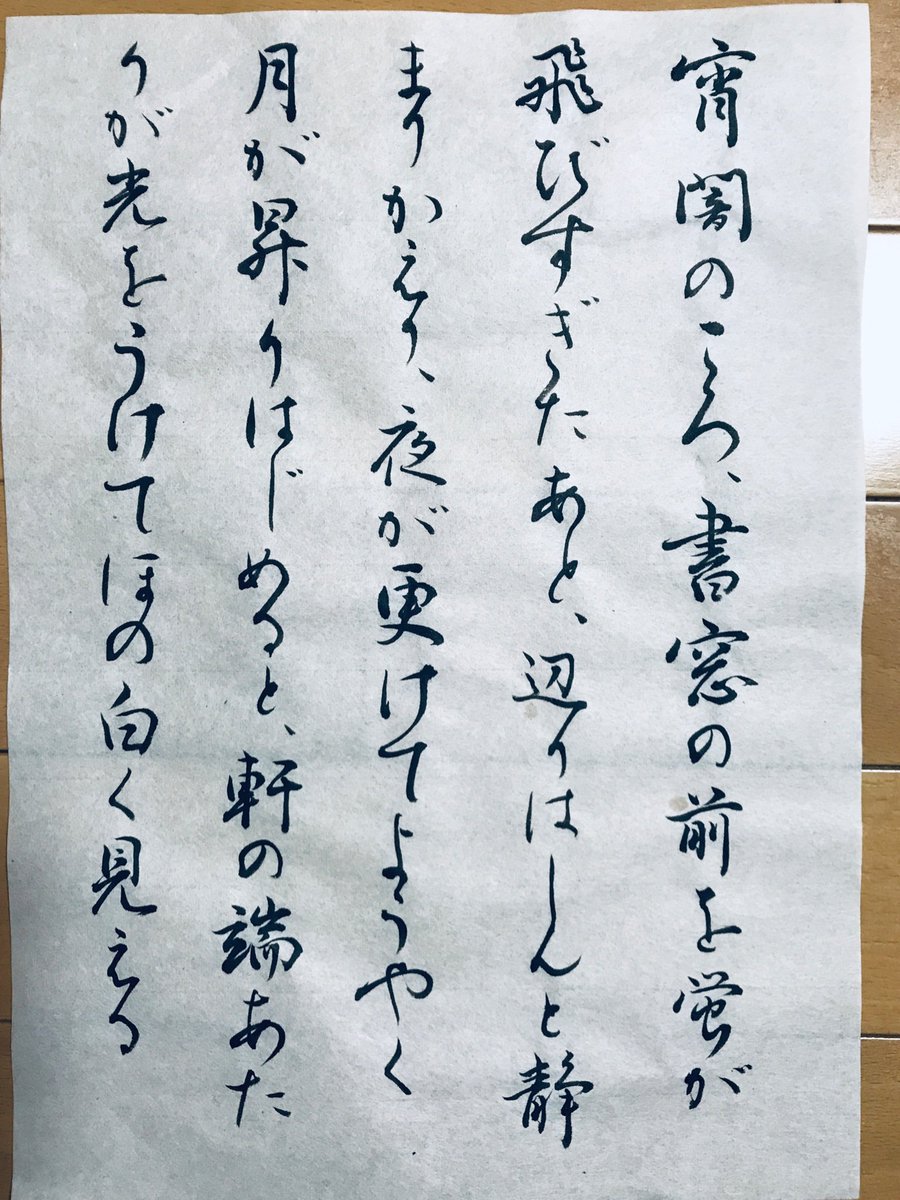 宵闇のころ、書窓の前を蛍が
飛びすぎたあと、辺りはしんと静
まりかえり、夜が更けてようやく
月が昇りはじめると、軒の端あた
りが光をうけてほの白く見える